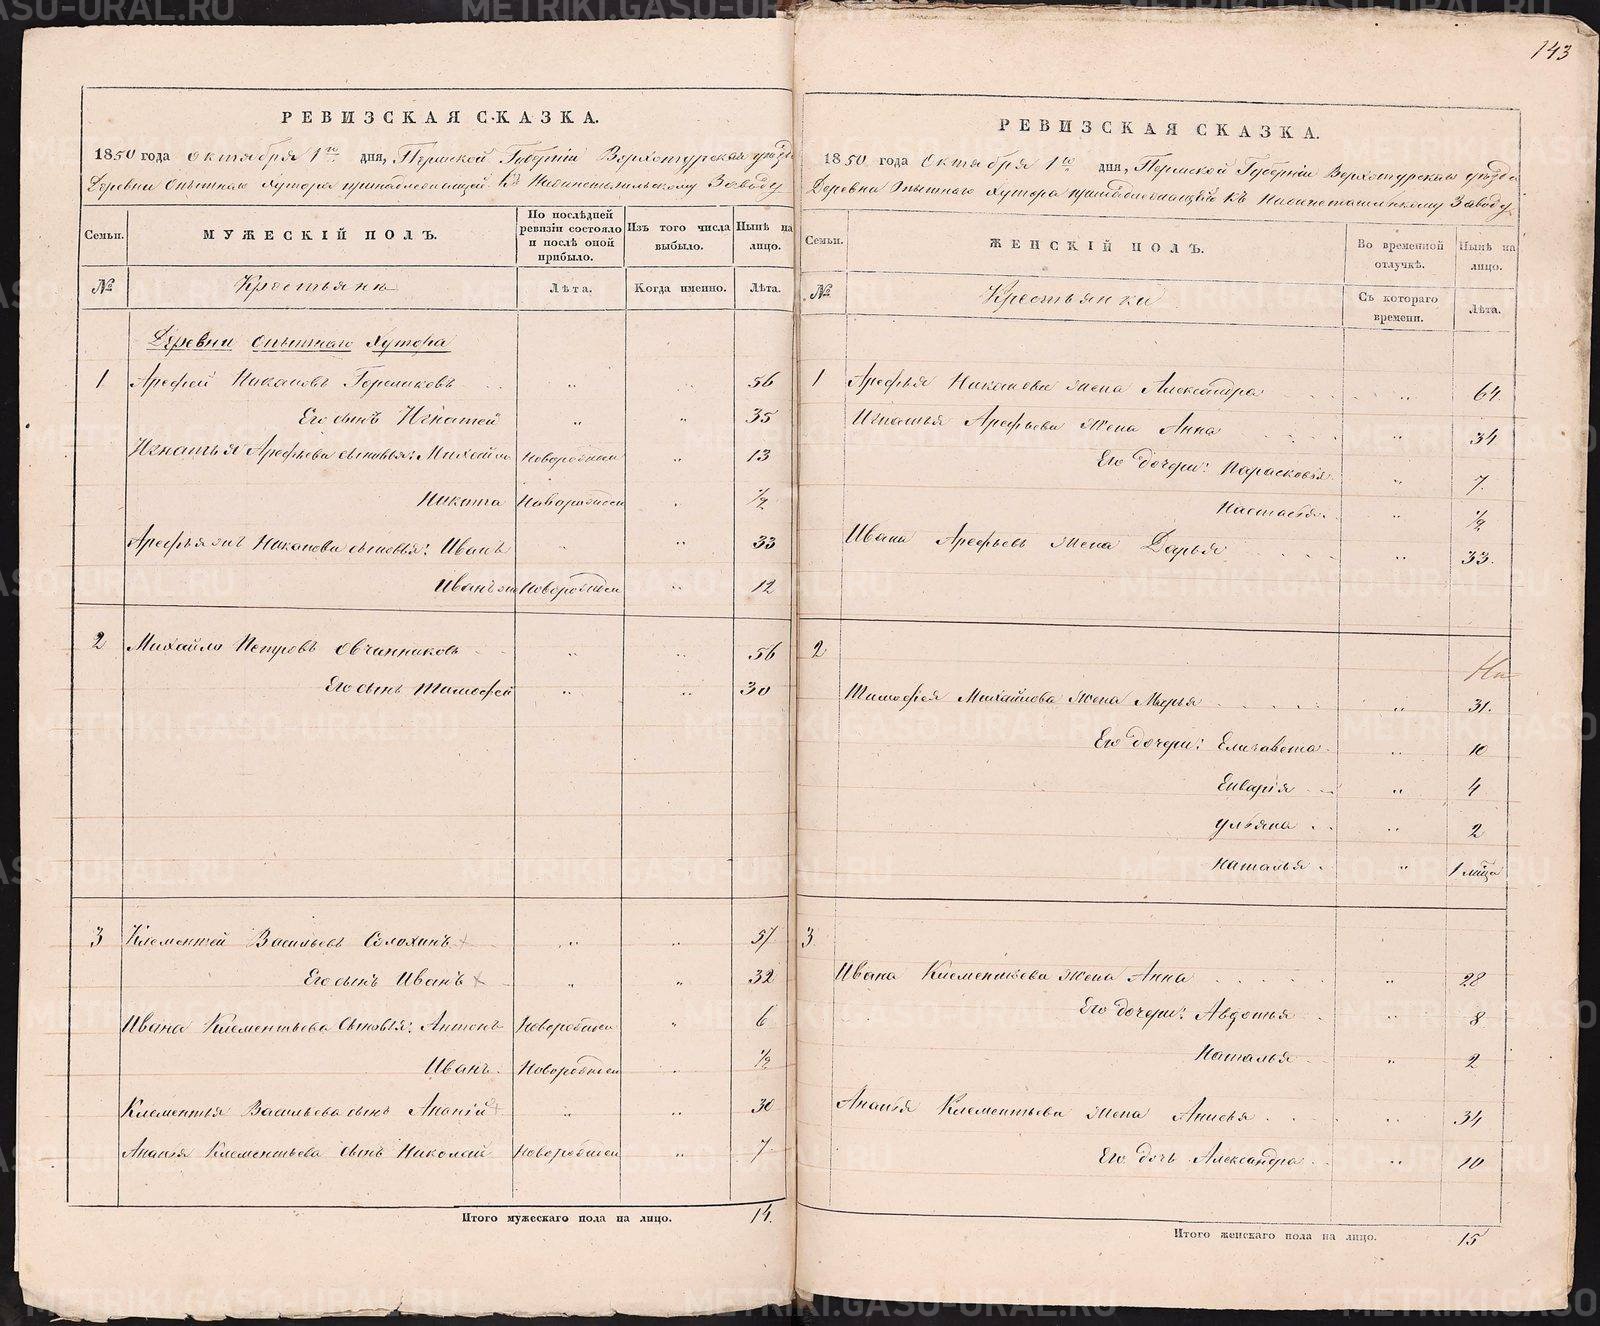 143
РЕВИЗСКАЯ СКАЗКА.
1850 года октября 1го дня, Пермской Губерніи Верхотурскаго уѣзда
Деревни Опытнаго Хутора принадлежащей къ Нижнетагильскому Заводу
Семьи.
МУЖЕСКІЙ ПОЛЪ.
По послѣдней ревизіи состояло и послѣ оной прибыло.
Изъ того числа выбыло.
Нынѣ на лицо.
№
Крестьяне
Лѣта.
Когда именно.
Лѣта.
Деревни Опытнаго Хутора
1 Арефей Никановъ Горшковъ " " 56
Его сынъ Игнатей " " 35
Игнатья Арефьева сыновья: Михайло новорожден " 13
Никита Новорожден " 1/2
Арефья Никанова сыновья: Иванъ " " 33
Иванъ Новорожден " 12
2 Михайло Петровъ Овчинниковъ " " 56
Его сынъ Тимофей " " 30
3 Клементей Васильевъ Солохинъ " " 57
Его сынъ Иванъ " " 32
Ивана Клементьева сыновья: Антонъ Новорожден " 6
Иванъ Новорожден " 1/2
Клементья Васильева сынъ Ананій " " 30
Ананья Клементьева сынъ Николай Новорожден " 7
Итого мужескаго пола на лицо. 14.
РЕВИЗСКАЯ СКАЗКА.
1850 года Октября 1го дня, Пермской Губерніи Верхотурскаго уѣзда
Деревни Опытнаго Хутора принадлежащей къ Нижнетагильскому Заводу
Семьи.
ЖЕНСКІЙ ПОЛЪ.
Во временной отлучкѣ.
Нынѣ на лицо.
№
Крестьянки
Съ котораго времени.
Лѣта.
1 Арефья Никанова жена Александра " 64.
Игнатья Арефьева жена Анна " 34
Его дочери: Парасковья " 7.
Настасья " 1/2
Ивана Арефьева жена Дарья " 33.
2
Тимофея Михайлова жена Марья " 31.
Его дочери: Елизавета " 10
Енварія " 4
Ульяна " 2
Наталья " 1 мѣсца
3
Ивана Клементьева жена Анна " 28
Его дочери: Авдотья " 8
Наталья " 2
Ананья Клементьева жена Анисья " 34
Его дочь Александра " 10
Итого женскаго пола на лицо. 15
METRIKI.GASO-URAL.RU